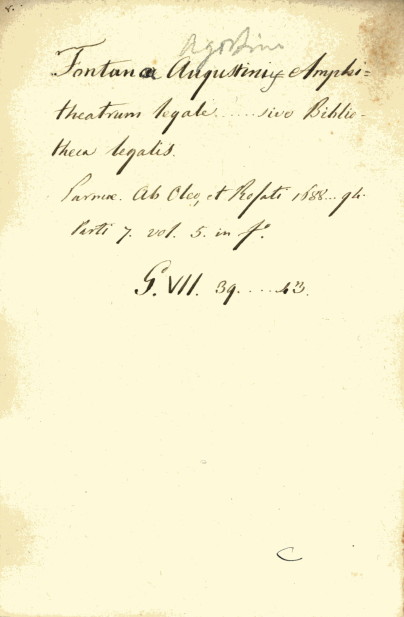 Agostino
Fontana Augustini Amphi=
theatrum legale......sive Biblio-
theca legalis.
Parmæ. Ab Oleo, et Rosati 1688...94.
Parti 7. vol. 5. in fº.
G. VII. 39.....43.
C